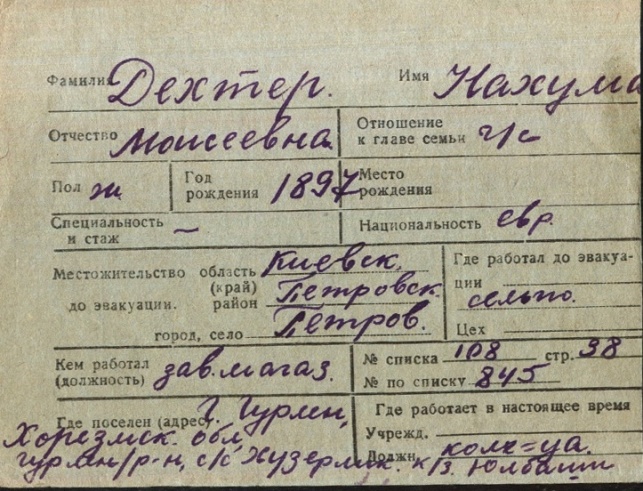 Фамилия Дехтер. Имя Нахума
Отчество Моисеевна. Отношение к главе семьи г/с
Пол ж Год рождения 1897 Место рождения
Специальность и стаж — Национальность евр.
Местожительство область Киевск. Где работал до эвакуа-
(край)
до эвакуации. район Петровск. ции сельпо.
город, село Петров. Цех
Кем работал (должность) зав. магаз. № списка 108 стр. 38
№ по списку 845
Где поселен (адрес). г. Гурлен, Где работает в настоящее время
Хорезмск. обл. Учрежд.
Должн. колх-ца.
гурлен/р-н, с/с к/з. Юлбаши